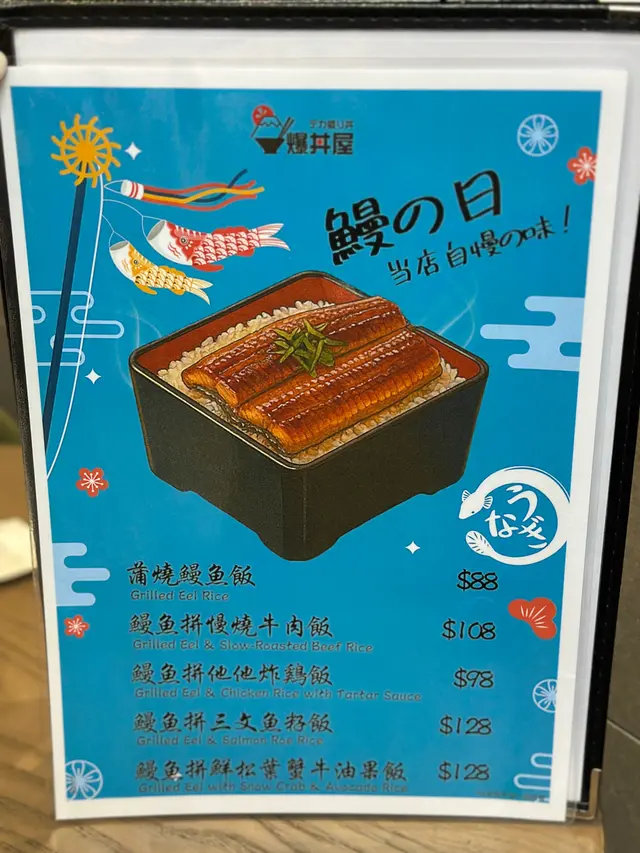 デカ盛り丼
爆丼屋
鰻の日
当店自慢の味！
うなぎ
蒲燒鰻魚飯 $88
Grilled Eel Rice
鰻魚拼慢燒牛肉飯 $108
Grilled Eel & Slow-Roasted Beef Rice
鰻魚拼他他炸鷄飯 $98
Grilled Eel & Chicken Rice with Tartar Sauce
鰻魚拼三文魚籽飯 $128
Grilled Eel & Salmon Roe Rice
鰻魚拼鮮松葉蟹牛油果飯 $128
Grilled Eel with Snow Crab & Avocado Rice